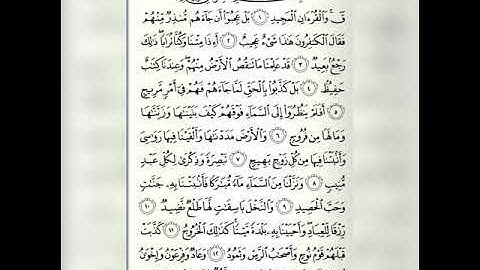 قٓ ۚ وَٱلْقُرْءَانِ ٱلْمَجِيدِ ١ بَلْ عَجِبُوٓا۟ أَن جَآءَهُم مُّنذِرٌ مِّنْهُمْ
فَقَالَ ٱلْكَٰفِرُونَ هَٰذَا شَىْءٌ عَجِيبٌ ٢ أَءِذَا مِتْنَا وَكُنَّا تُرَابًا ۖ ذَٰلِكَ
رَجْعٌۢ بَعِيدٌ ٣ قَدْ عَلِمْنَا مَا تَنقُصُ ٱلْأَرْضُ مِنْهُمْ ۖ وَعِندَنَا كِتَٰبٌ
حَفِيظٌۢ ٤ بَلْ كَذَّبُوا۟ بِٱلْحَقِّ لَمَّا جَآءَهُمْ فَهُمْ فِىٓ أَمْرٍ مَّرِيجٍ
٥ أَفَلَمْ يَنظُرُوٓا۟ إِلَى ٱلسَّمَآءِ فَوْقَهُمْ كَيْفَ بَنَيْنَٰهَا وَزَيَّنَّٰهَا
وَمَا لَهَا مِن فُرُوجٍ ٦ وَٱلْأَرْضَ مَدَدْنَٰهَا وَأَلْقَيْنَا فِيهَا رَوَٰسِىَ
وَأَنۢبَتْنَا فِيهَا مِن كُلِّ زَوْجٍۭ بَهِيجٍ ٧ تَبْصِرَةً وَذِكْرَىٰ لِكُلِّ عَبْدٍ
مُّنِيبٍ ٨ وَنَزَّلْنَا مِنَ ٱلسَّمَآءِ مَآءً مُّبَٰرَكًا فَأَنۢبَتْنَا بِهِۦ جَنَّٰتٍ
وَحَبَّ ٱلْحَصِيدِ ٩ وَٱلنَّخْلَ بَاسِقَٰتٍ لَّهَا طَلْعٌ نَّضِيدٌ ١٠
رِّزْقًا لِّلْعِبَادِ ۖ وَأَحْيَيْنَا بِهِۦ بَلْدَةً مَّيْتًا ۚ كَذَٰلِكَ ٱلْخُرُوجُ ١١ كَذَّبَتْ
قَبْلَهُمْ قَوْمُ نُوحٍ وَأَصْحَٰبُ ٱلرَّسِّ وَثَمُودُ ١٢ وَعَادٌ وَفِرْعَوْنُ وَإِخْوَٰنُ